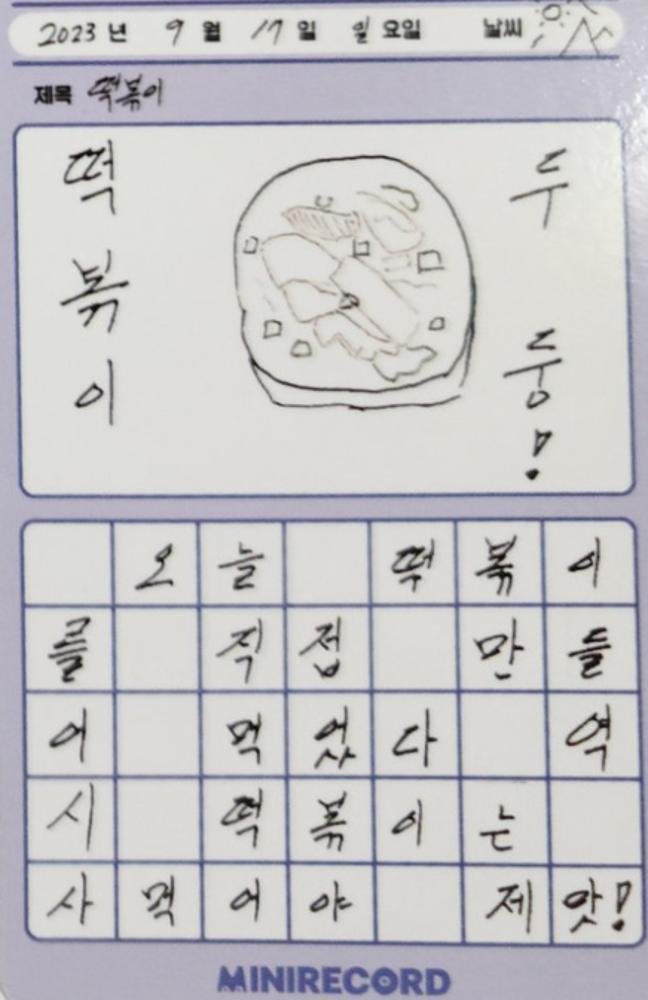 2023년 9월 17일 일요일 날씨
제목 떡볶이
떡볶이
두둥!
오늘 떡볶이
를 직접 만들
어 먹었다 역
시 떡볶이는
사먹어야 제맛!
MINIRECORD